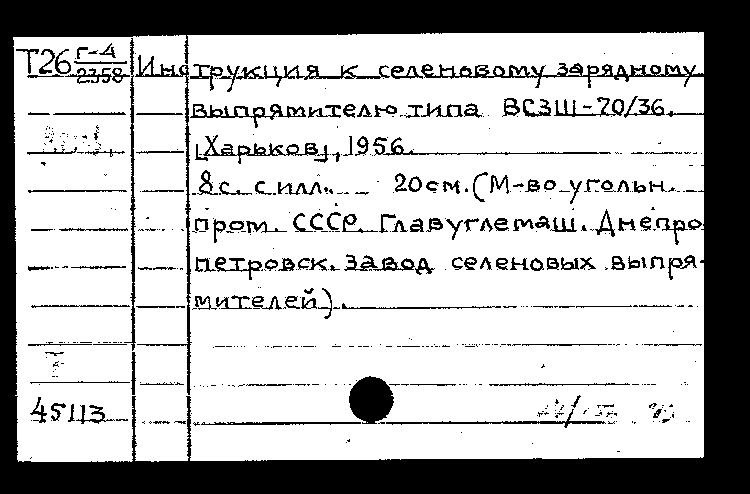 Т26 Г-4/2358 Инструкция к селеновому зарядному
выпрямителю типа ВСЗШ-70/36.
[Харьков], 1956.
8 с. с илл. 20 см. (М-во угольн.
пром. СССР. Главуглемаш. Днепро
петровск. завод селеновых выпря-
мителей).
45113